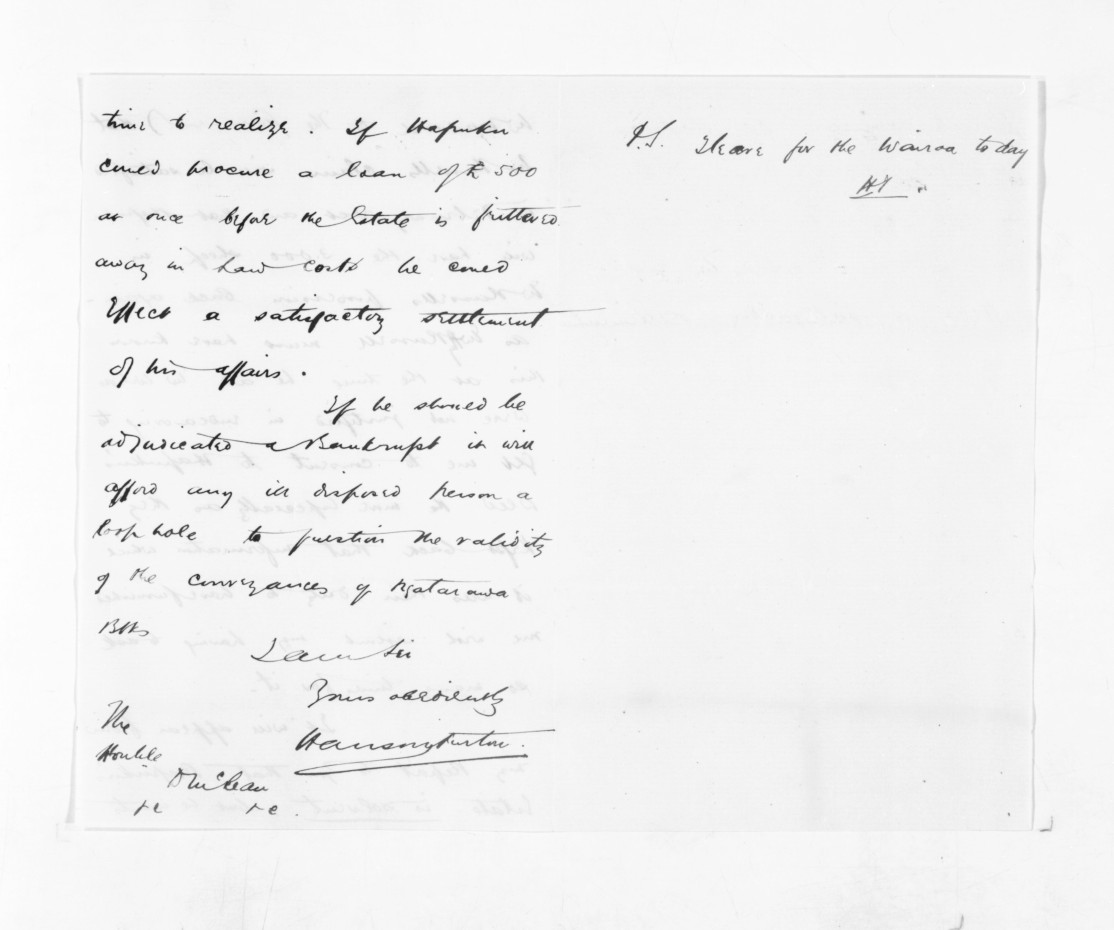 time to realize. If Hapuku
could procure a loan of £500
at once before the Estate is frittered
away in Law costs he could
Effect a satisfactory settlement
of his affairs.
If he should be
adjudicated a Bankrupt it will
afford any ill disposed person a
loop hole to question the validity
of the conveyances of Ngatarawa
Blks
I am Sir
Yours obediently
Hanson Turton.
The
Honble
D McLean
&c &c.
P.S. I leave for the Wairoa to day
HT